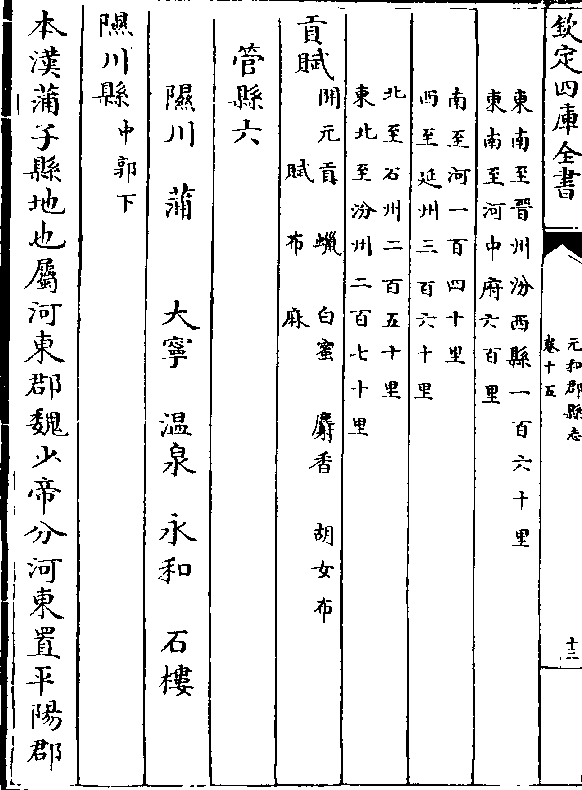 欽定四庫全書
元和郡縣志
卷十五
十二
東南至晉州汾西縣一百六十里
東南至河中府六百里
南至河一百四十里
西至延州三百六十里
北至石州二百五十里
東北至汾州二百七十里
貢賦
開元貢 蠟 白蜜 麝香 胡女布
賦 布 麻
管縣六
隰川 蒲 大寧 温泉 永和 石樓
隰川縣中郭下
本漢蒲子縣地也屬河東郡魏少帝分河東置平陽郡